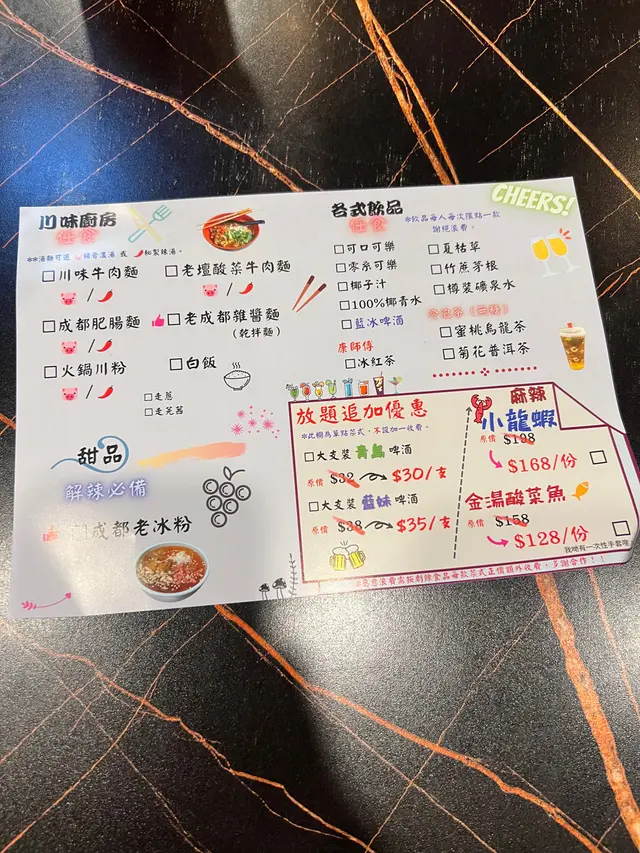 川味廚房
任食
**湯麵可選 豬骨濃湯 或 秘製辣湯。
川味牛肉麵
老壇酸菜牛肉麵
/
/
成都肥腸麵
老成都雜醬麵
(乾拌麵)
/
火鍋川粉
白飯
/
走蔥
走芫茜
甜品
解辣必備
成都老冰粉
各式飲品
任食
*飲品每人每次限點一款
謝絕浪費。
CHEERS!
可口可樂
零系可樂
椰子汁
100%椰青水
藍冰啤酒
康師傅
冰紅茶
夏枯草
竹蔗茅根
樽裝礦泉水
冷泡茶(無糖)
蜜桃烏龍茶
菊花普洱茶
放題追加優惠
*此欄為單點菜式,不設加一收費。
大支裝青島啤酒
原價 $32 $30/支
大支裝藍妹啤酒
原價 $38 $35/支
麻辣
小龍蝦
原價 $198
$168/份
金湯酸菜魚
原價 $158
$128/份
我哋有一次性手套㗎